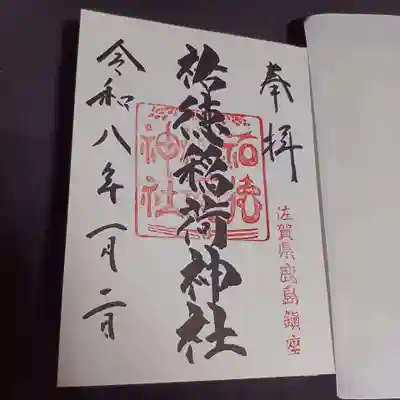 奉拝
佐賀県鹿島鎮座
祐徳稲荷神社
祐徳
神社
令和八年一月二日